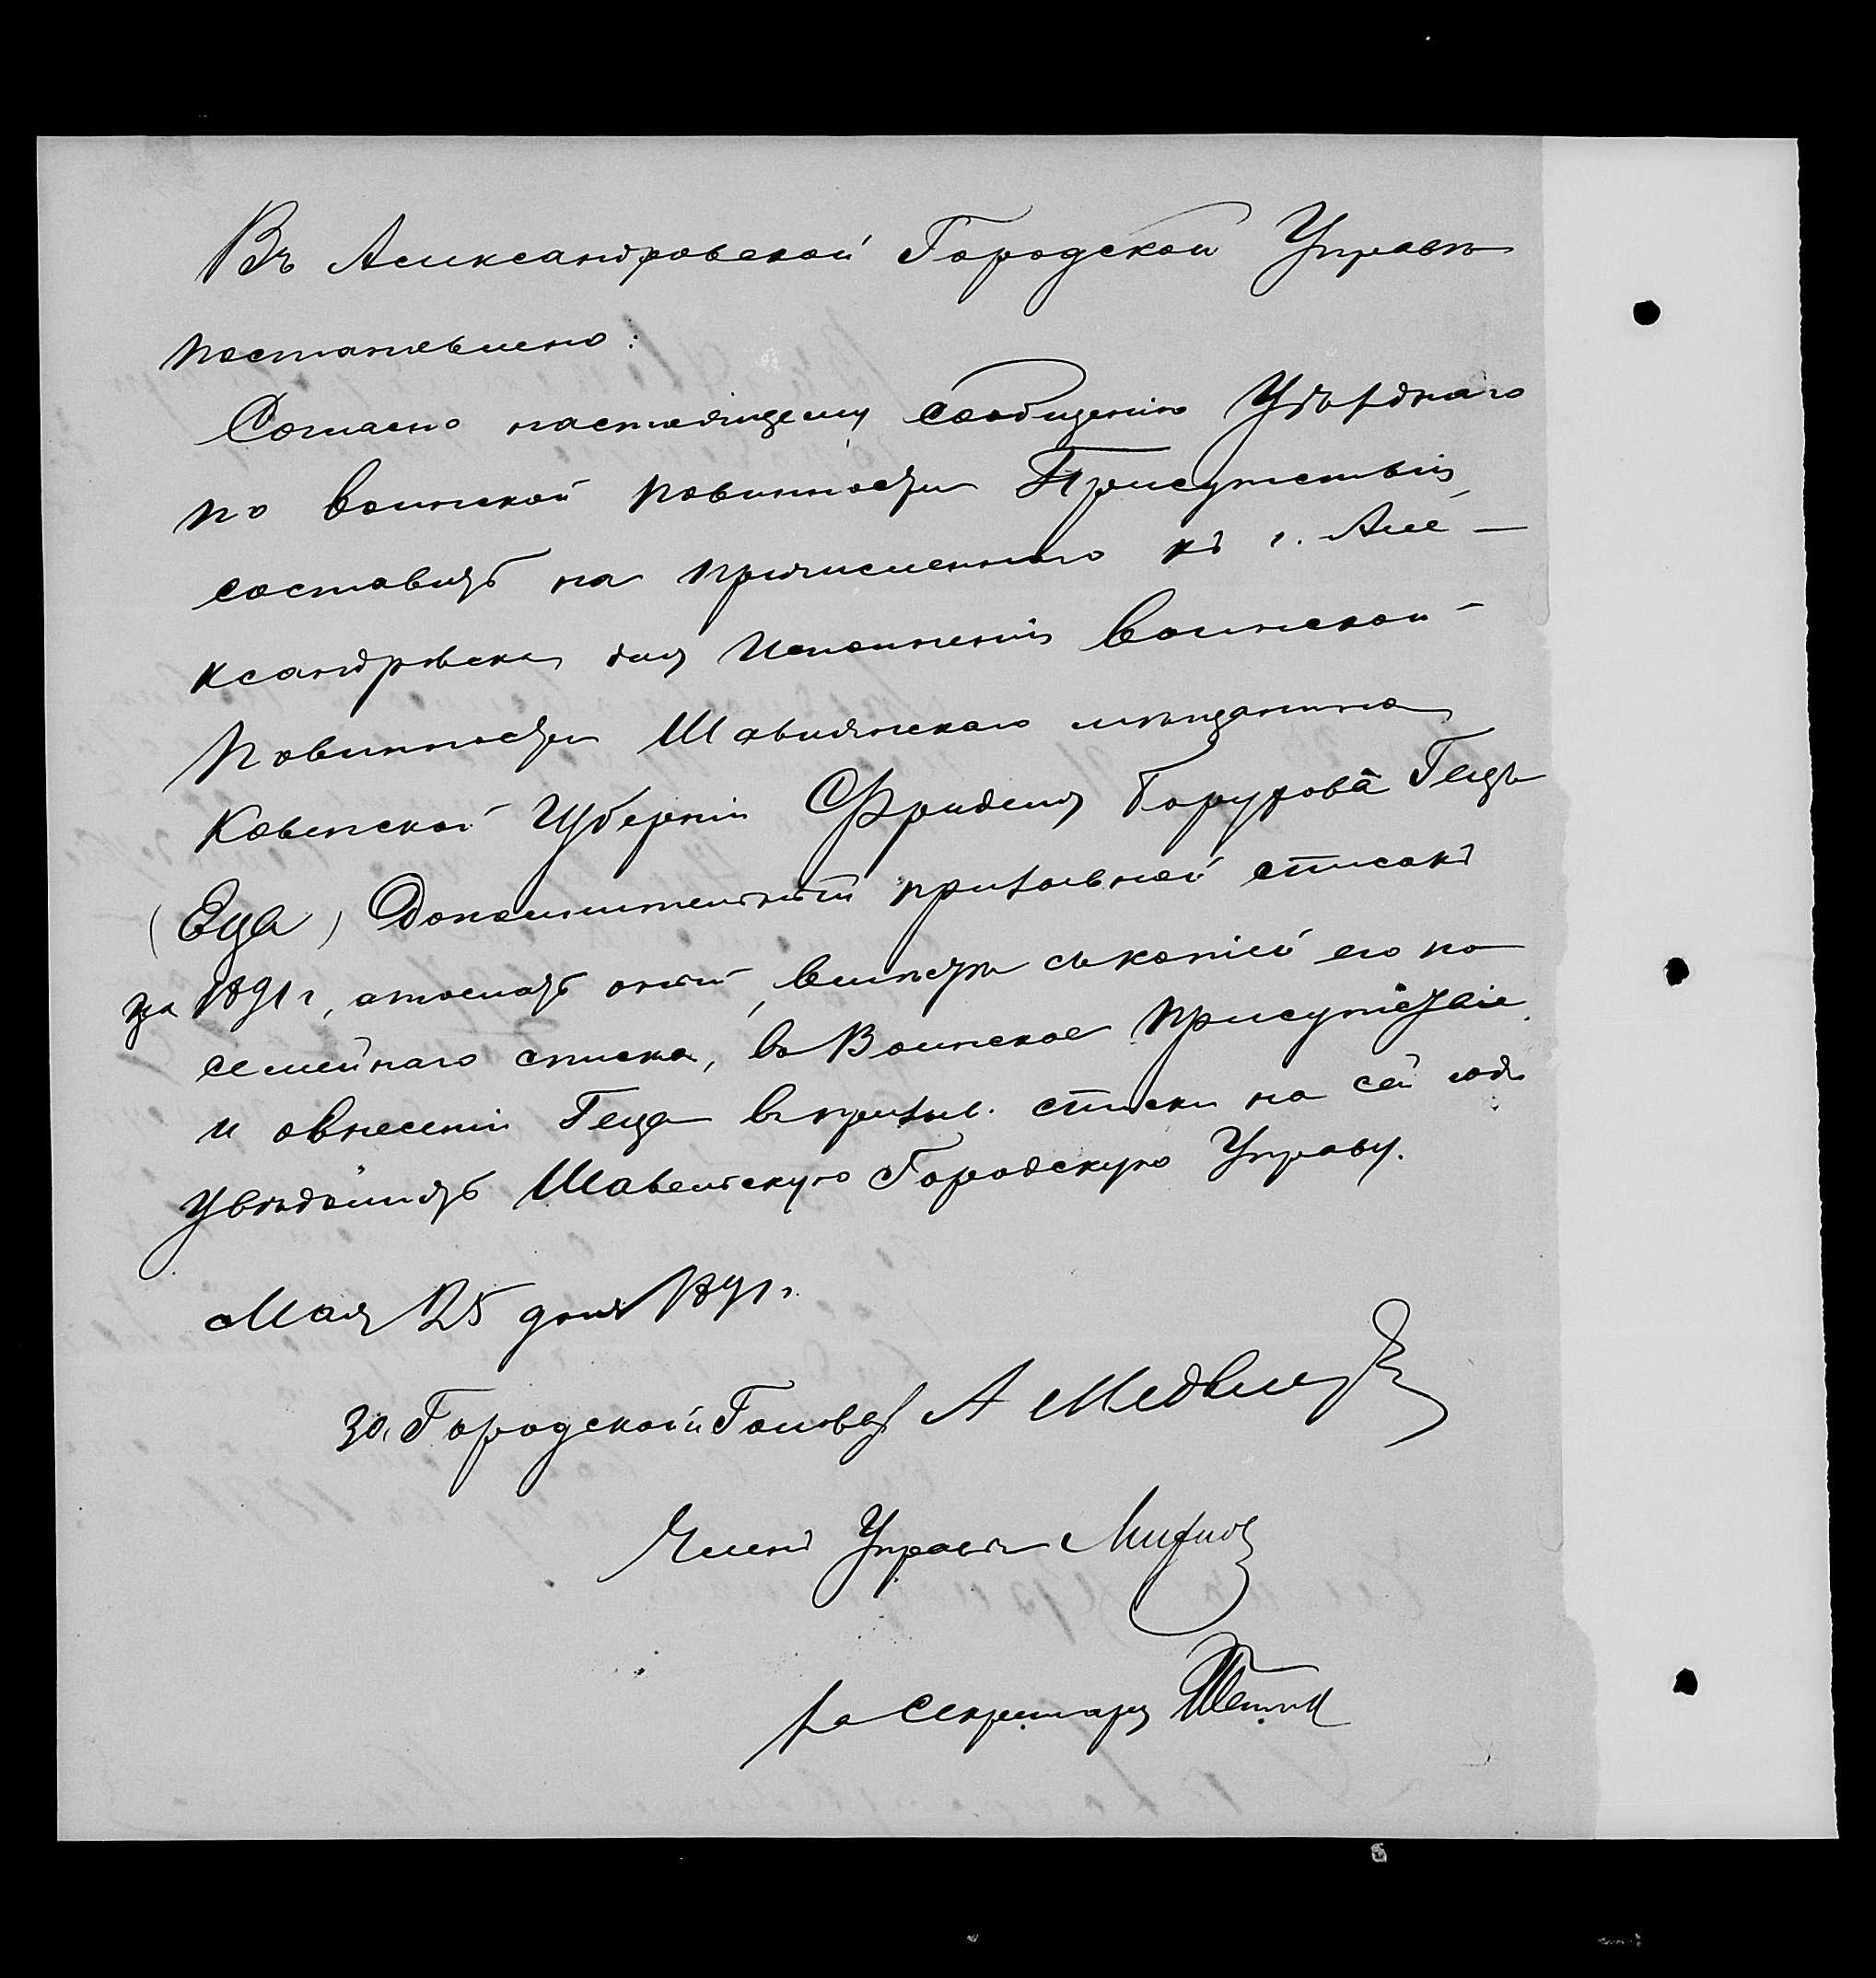 Въ Александровской Городской Управѣ
постановлено:
Согласно настоящему сообщенію Уѣзднаго
по воинской повинности Присутствія
составить на причисленнаго къ г. Але-
ксандровску для исполненія воинской
повинности Шавлянскаго мѣщанина
Ковенской Губерніи Фриделя Гецъ
(Еца) дополнительный призывной списокъ
за 1891 г, отослать оный, вмѣстѣ съ копіей его по
семейнаго списка, въ Воинское Присутствіе
и о внесеніи Геца въ призыв. списки на сей годъ
увѣдомить Шавельскую Городскую Управу.
Мая 25 дня 1891 г.
За. Городской Голова А Медвед
Членъ Управы
За Секретаря